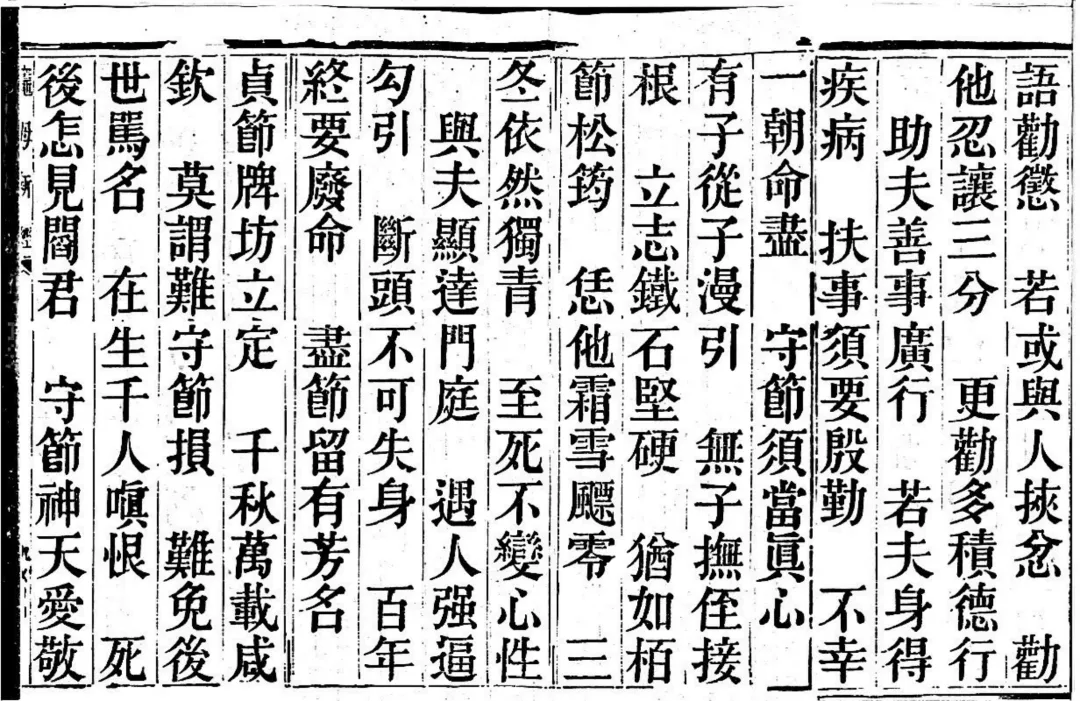 語勸懲　若或與人挾忿　勸
他忍讓三分　更勸多積德行
助夫善事廣行　若夫身得
疾病　扶事須要殷勤　不幸
一朝命盡　守節須當眞心
有子從子漫引　無子撫侄接
根　立志鐵石堅硬　猶如栢
節松筠　恁他霜雪飃零　三
冬依然獨青　至死不變心性
與夫顯達門庭　遇人强逼
勾引　斷頭不可失身　百年
終要廢命　盡節留有芳名
貞節牌坊立定　千秋萬載咸
欽　莫謂難守節損　難免後
世罵名　在生千人嗔恨　死
後怎見閻君　守節神天愛敬